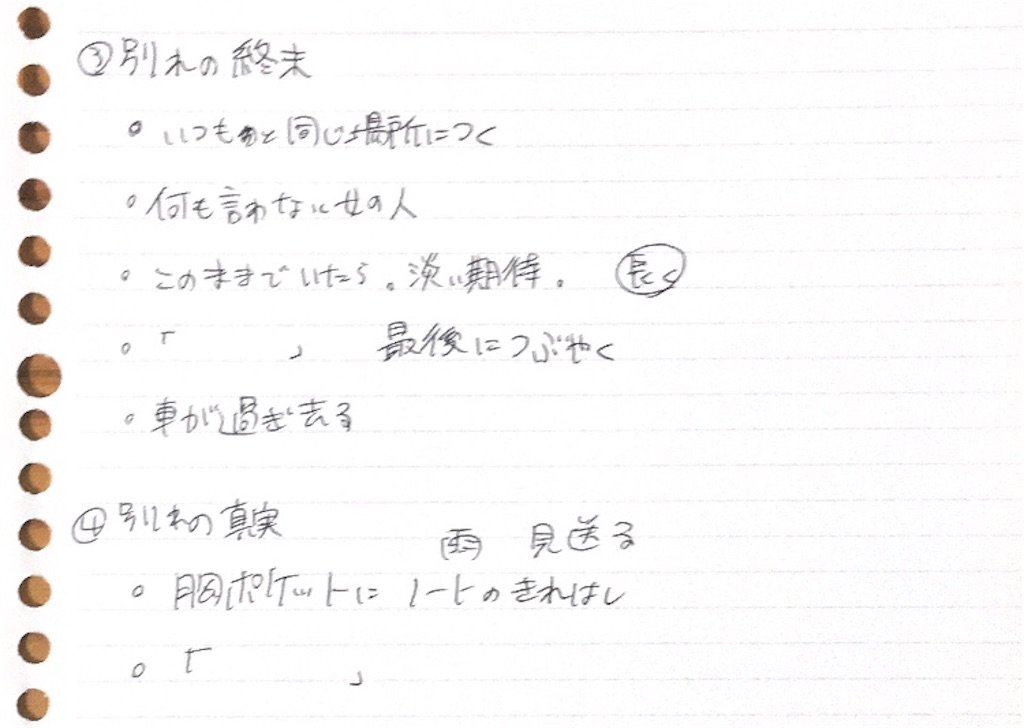 ③別れの終末
。いつもと同じ場所につく
。何も言わない女の人
。このままでいたら。淡い期待。 長く
。「 」 最後につぶやく
。車が過ぎ去る
④別れの真実
雨 見送る
。胸ポケットに ノートのきれはし
。「 」